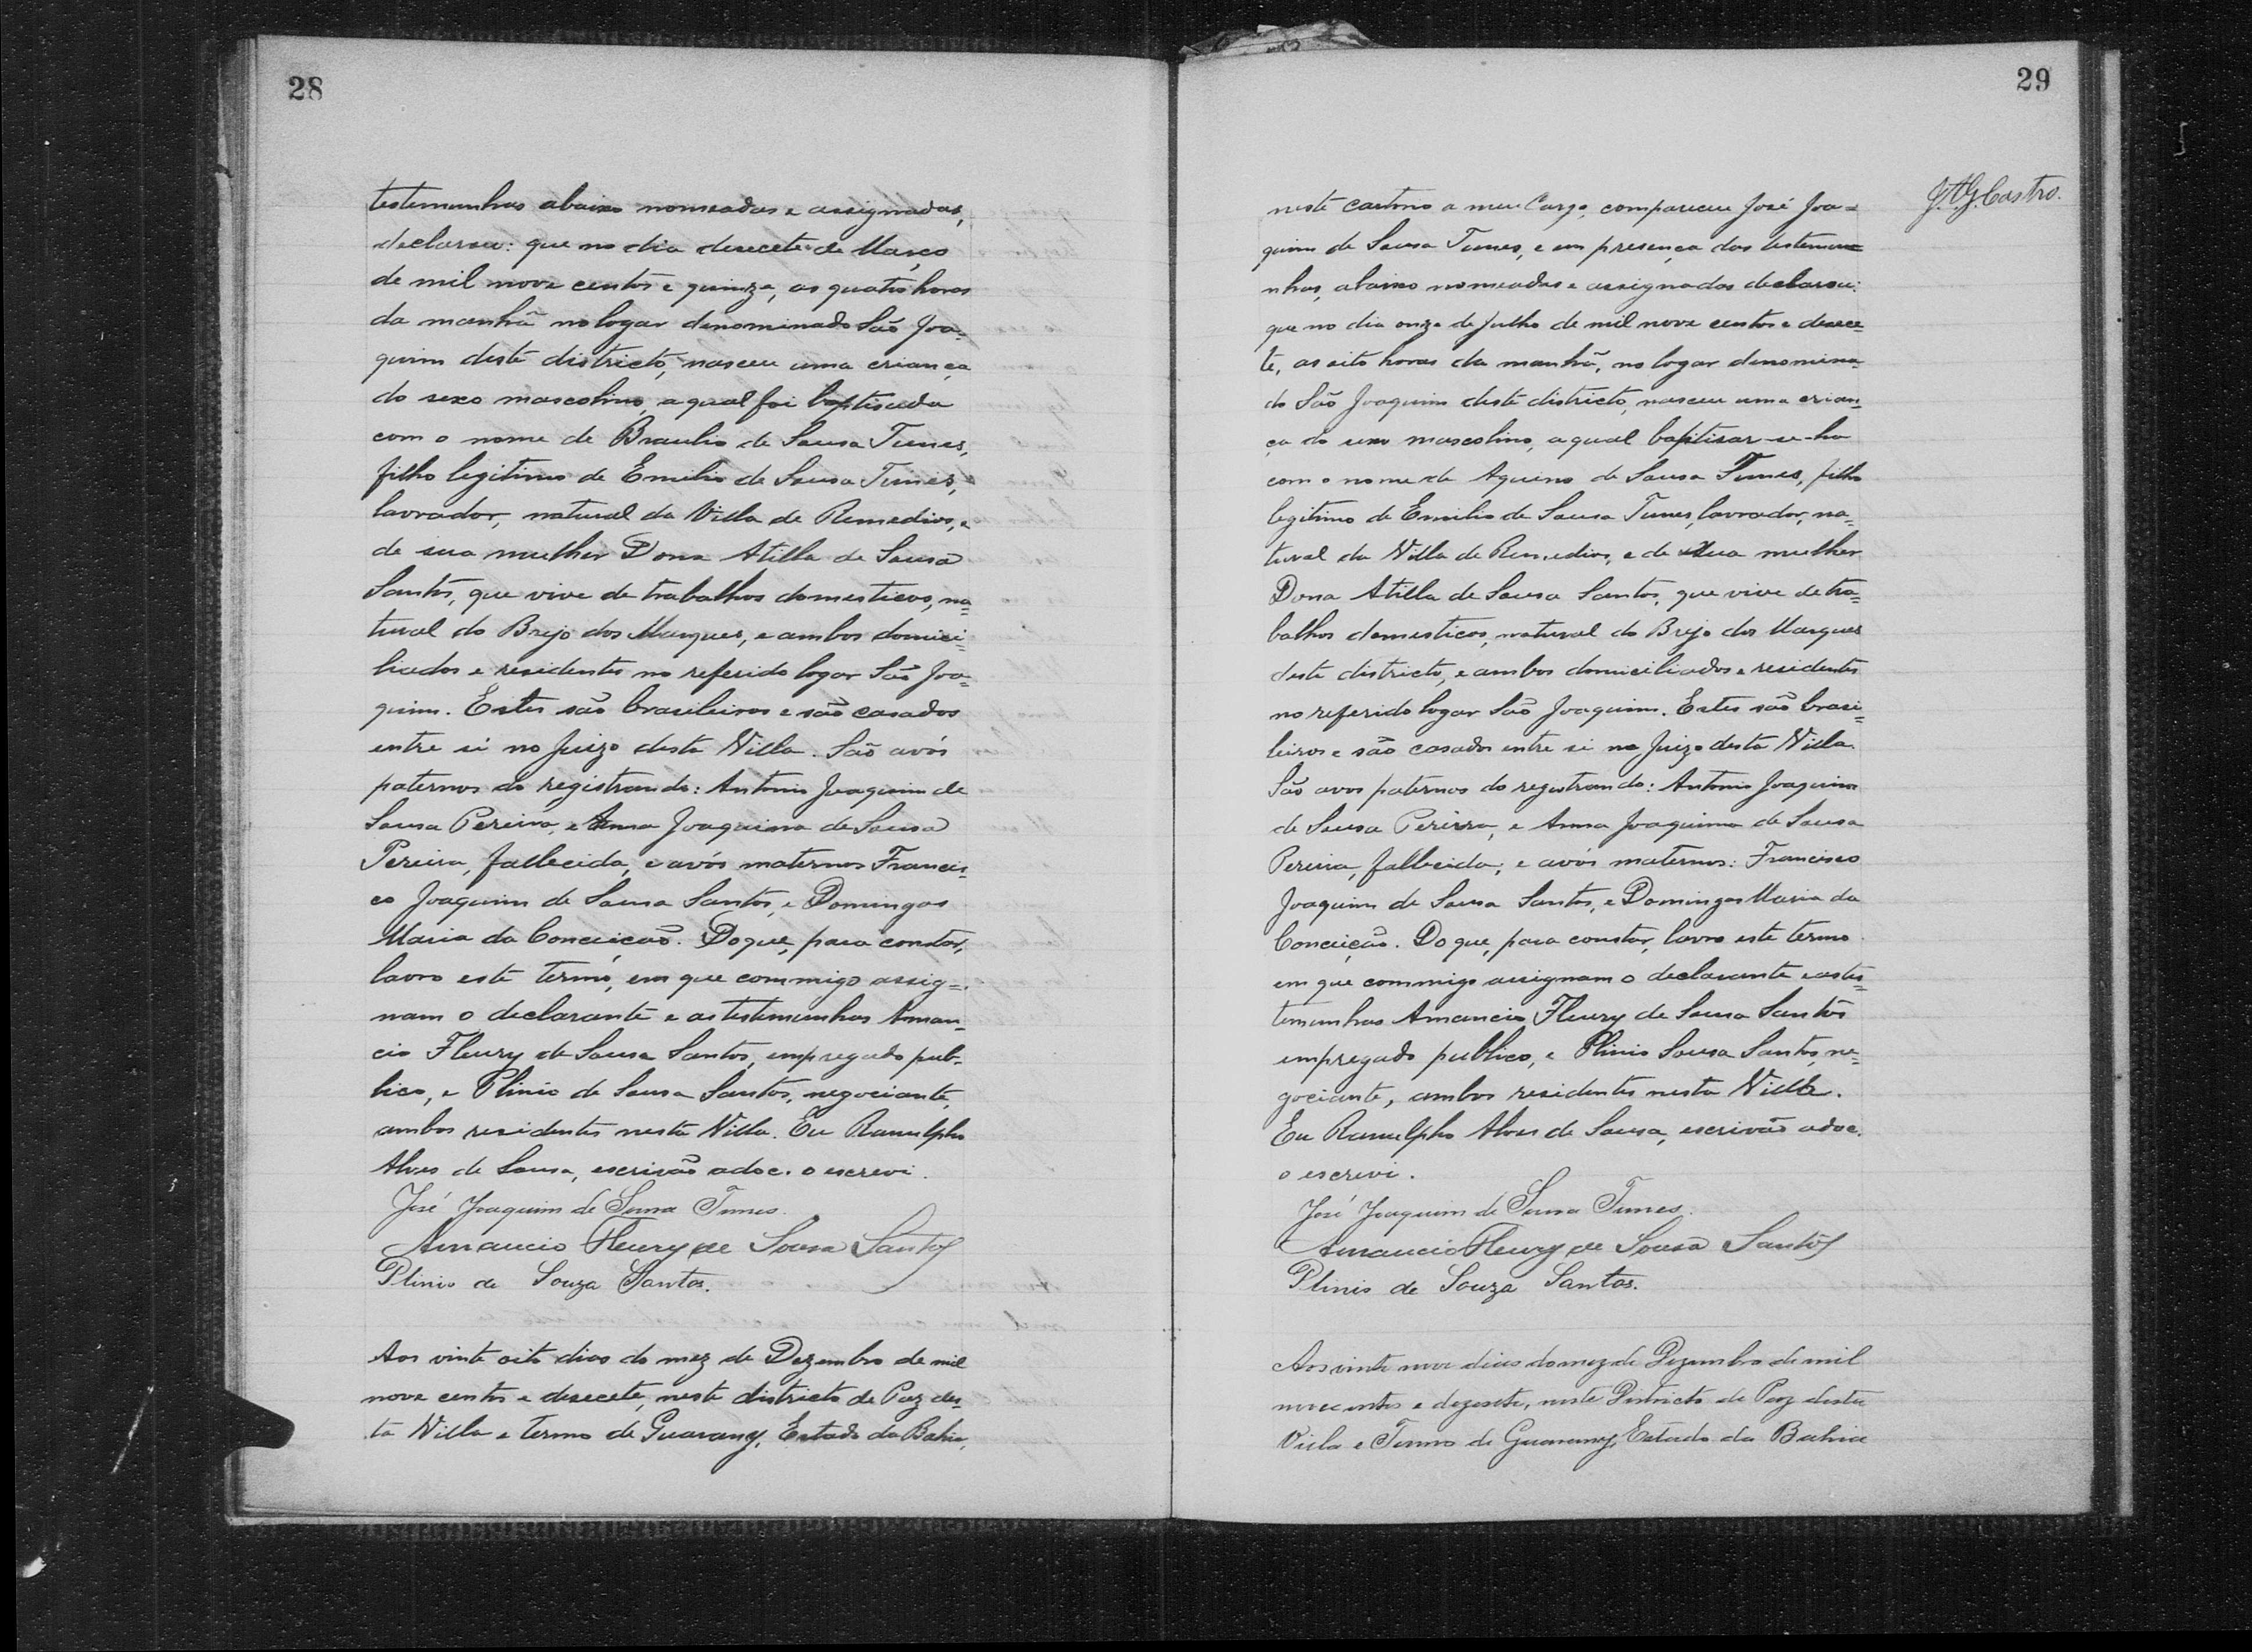 28
testemunhas abaixo nomeadas e assignadas,
declarou: que no dia desecete de Março
de mil nove centos e quinze, as quatro horas
da manhã no logar denominado São Joa-
quim deste districto, nasceu uma criança
do sexo mascolino, a qual foi baptisada
com o nome de Braulio de Sousa Tunes,
filho legitimo de Emilio de Sousa Tunes,
lavrador, natural da Villa de Remedios, e
de sua mulher Dona Atilla de Sousa
Santos, que vive de trabalhos domesticos, na=
tural do Brejo dos Marques, e ambos domici=
liados e residentes no referido logar São Joa=
quim. Estes são brasileiros e são casados
entre si no Juizo desta Villa. São avós
paternos do registrando: Antonio Joaquim de
Sousa Pereira, e Anna Joaquina de Sousa
Pereira, fallecida, e avós maternos Francis=
co Joaquim de Sousa Santos, e Domingas
Maria da Conceição. Do que, para constar,
lavro este termo, em que commigo assig=
nam o declarante e as testemunhas Aman=
cio Fleury de Sousa Santos, empregado pub-
lico, e Plinio de Sousa Santos, negociante,
ambos residentes nesta Villa. Eu Ranulpho
Alves de Sousa, escrivão adoc. o escrevi.
José Joaquim de Sousa Tunes.
Amancio Fleury de Sousa Santos
Plinio de Souza Santos.
Aos vinte oito dias do mez de Dezembro de mil
nove centos e desecete, neste districto de Paz des=
ta Villa e termo de Guarany, Estado da Bahia,
29
J. A. G. Castro.
neste cartorio a meu Cargo, compareceu José Joa=
quim de Sousa Tunes, e em presença das testemu=
nhas, abaixo nomeadas e assignadas declarou:
que no dia onze de Julho de mil nove centos e desece=
te, as oito horas da manhã, no logar denomina=
do São Joaquim deste districto, nasceu uma crian=
ça do sexo mascolino, a qual baptisar-se-ha
com o nome de Aquino de Sousa Tunes, filho
legitimo de Emilio de Sousa Tunes, lavrador, na=
tural da Villa de Remedios, e de sua mulher
Dona Atilla de Sousa Santos, que vive de tra=
balhos domesticos, natural do Brejo dos Marques
deste districto, e ambos domiciliados e residentes
no referido logar São Joaquim. Estes são brasi=
leiros e são casados entre si no Juizo desta Villa.
São avos paternos do registrando: Antonio Joaquim
de Sousa Pereira, e Anna Joaquina de Sousa
Pereira, fallecida; e avós maternos: Francisco
Joaquim de Sousa Santos, e Domingas Maria da
Conceição. Do que, para constar, lavro este termo
em que commigo assignam o declarante e as tes=
temunhas Amancio Fleury de Sousa Santos
empregado publico, e Plinio Sousa Santos, ne=
gociante, ambos residentes nesta Villa.
Eu Ranulpho Alves de Sousa, escrivão adoc.
o escrevi.
José Joaquim de Sousa Tunes.
Amancio Fleury de Sousa Santos
Plinio de Souza Santos.
Aos vinte nove dias do mez de Dezembro de mil
novecentos e dezesete, neste Districto de Paz desta
Villa e Termo de Guarany, Estado da Bahia